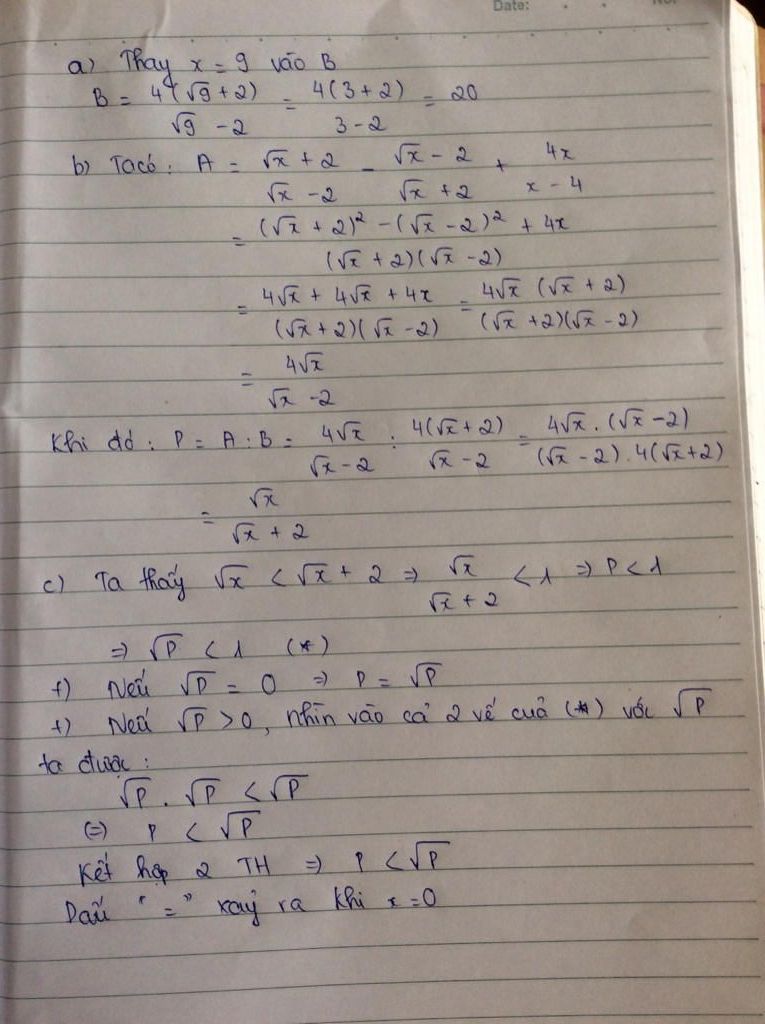 Date: No:
a) Thay x = 9 vào B
B = 4(√9 + 2) / (√9 - 2) = 4(3 + 2) / (3 - 2) = 20
b) Ta có : A = (√x + 2) / (√x - 2) - (√x - 2) / (√x + 2) + 4x / (x - 4)
= ((√x + 2)² - (√x - 2)² + 4x) / ((√x + 2)(√x - 2))
= (4√x + 4√x + 4x) / ((√x + 2)(√x - 2)) = 4√x (√x + 2) / ((√x + 2)(√x - 2))
= 4√x / (√x - 2)
Khi đó : P = A : B = 4√x / (√x - 2) : 4(√x + 2) / (√x - 2) = 4√x . (√x - 2) / ((√x - 2) . 4(√x + 2))
= √x / (√x + 2)
c) Ta thấy √x < √x + 2 ⇒ √x / (√x + 2) < 1 ⇒ P < 1
⇒ √P < 1 (*)
+) Nếu √P = 0 ⇒ P = √P
+) Nếu √P > 0, nhìn vào cả 2 vế của (*) với √P
ta được :
√P . √P < √P
(=) P < √P
Kết hợp 2 TH ⇒ P < √P
Dấu "=" xảy ra khi x = 0